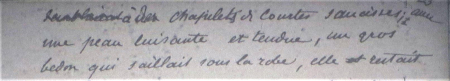 semblables à des chapelets de courtes saucisses ; avec
une peau luisante et tendue, un gros
bedon qui saillait sous la robe, elle était